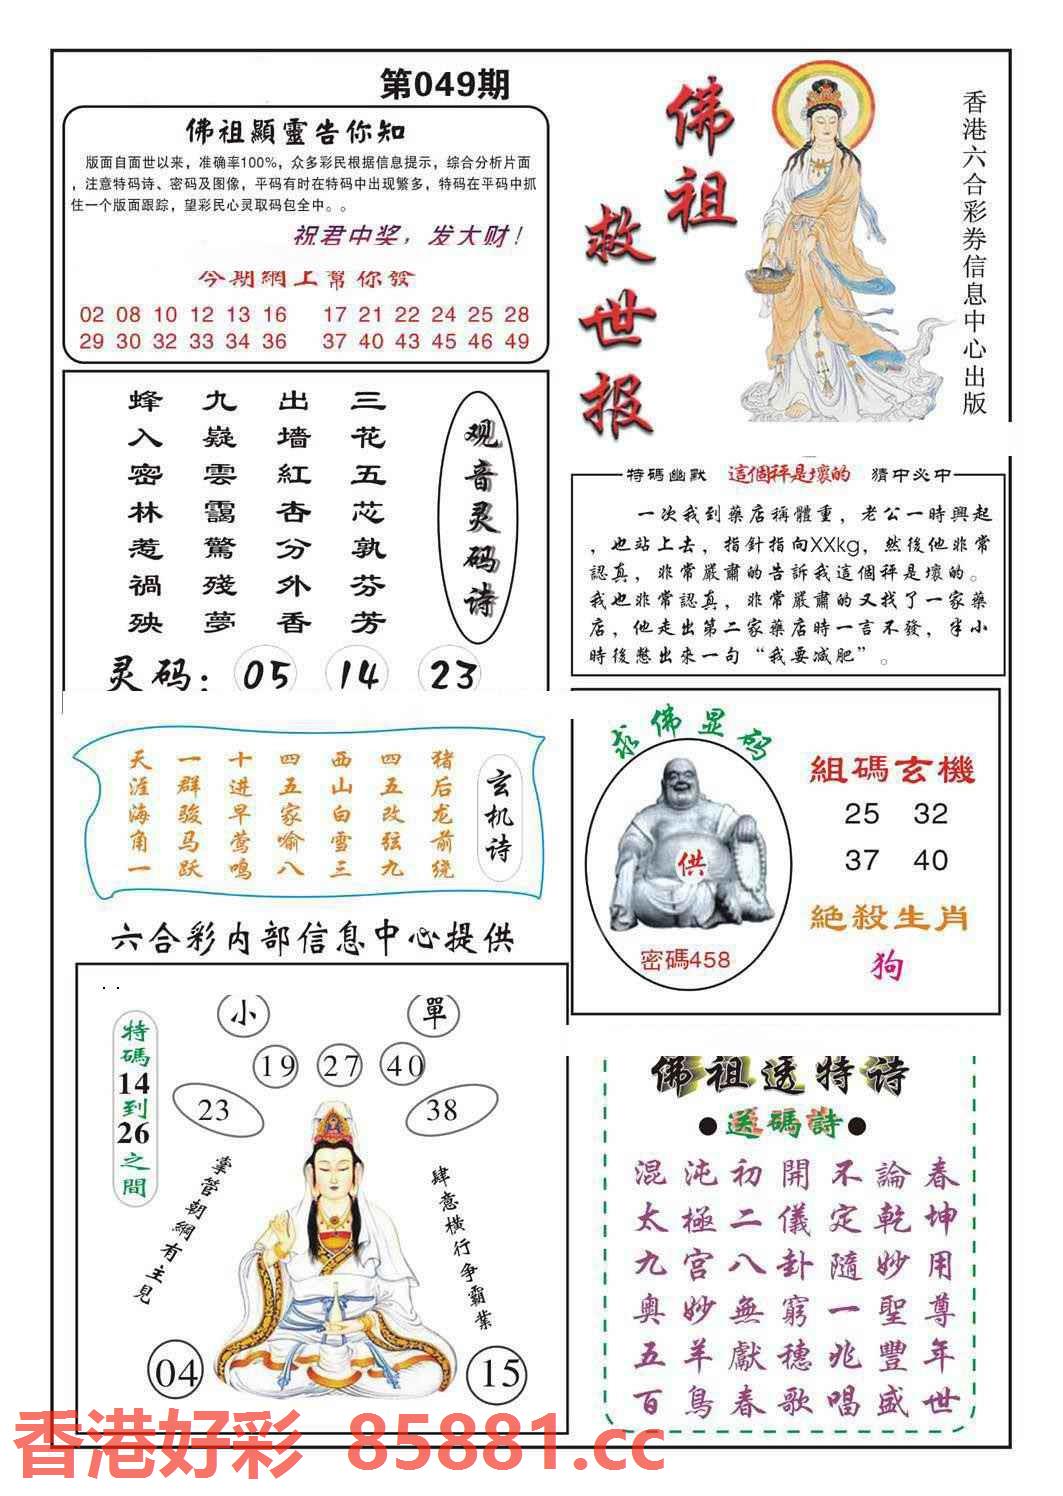 第049期
佛祖顯靈告你知
版面自面世以来，准确率100%，众多彩民根据信息提示，综合分析片面
，注意特码诗、密码及图像，平码有时在特码中出现繁多，特码在平码中抓
住一个版面跟踪，望彩民心灵取码包全中。。
祝君中奖，发大财！
今期網上幫你發
02 08 10 12 13 16 17 21 22 24 25 28
29 30 32 33 34 36 37 40 43 45 46 49
佛祖
救世报
香港六合彩券信息中心出版
观音灵码诗
三花五芯孰芬芳
出墙紅杏分外香
九嶷雲靄驚殘夢
蜂入密林惹禍殃
灵码：05 14 23
特碼幽默 這個秤是壞的 猜中必中
一次我到藥店稱體重，老公一時興起
，也站上去，指針指向XXkg，然後他非常
認真，非常嚴肅的告訴我這個秤是壞的。
我也非常認真，非常嚴肅的又找了一家藥
店，他走出第二家藥店時一言不發，半小
時後憋出來一句“我要减肥”。
玄机诗
猪后龙前绕
四五改弦九
西山白雪三
四五家喻八
十进早莺鸣
一群骏马跃
天涯海角一
求佛显码
供
密碼458
組碼玄機
25 32
37 40
絕殺生肖
狗
六合彩内部信息中心提供
小 單
19 27 40
23 38
特碼14到26之間
掌管朝綱有主見
肆意横行争霸業
04 15
佛祖透特诗
●送碼詩●
混沌初開不論春
太極二儀定乾坤
九宫八卦隨妙用
奥妙無窮一聖尊
五羊獻穗兆豐年
百鳥春歌唱盛世
香港好彩 85881.cc